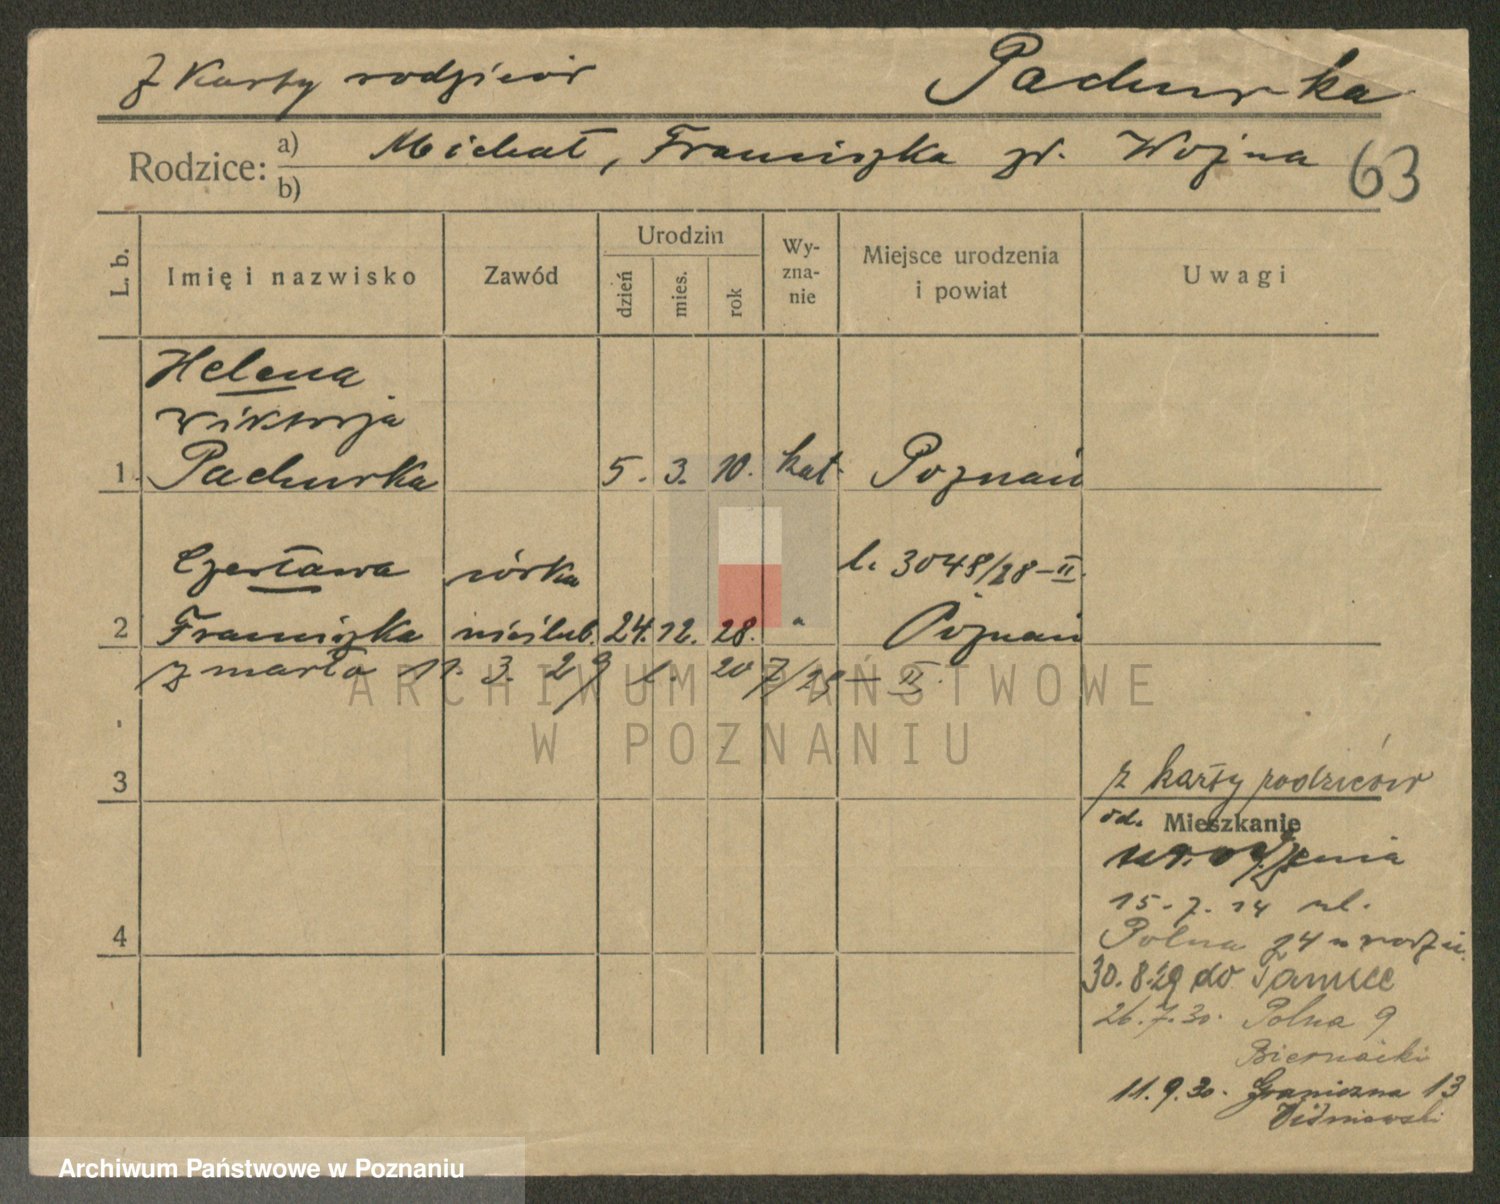 z Karty rodziców Pachurka
Rodzice: a) Michał, Franciszka zd. Wojna
b)
63
L. b. Imię i nazwisko Zawód Urodzin dzień mies. rok Wy-zna-nie Miejsce urodzenia i powiat Uwagi
Helena
Wiktorja
1 Pachurka 5. 3. 10. kat. Poznań
Czesława córka l. 3048/28-II.
2 Franciszka nieślub. 24. 12. 28. " Poznań
zmarła 11. 3. 29 l. 207/29 - II.
ARCHIWUM PAŃSTWOWE
W POZNANIU
3
z karty rodziców
od. Mieszkanie
urodzenia
4
15.7.14 ul.
Polna 24 u rodzic.
30.8.29 do
26.7.30. Polna 9
Biernacki
11.9.30. Graniczna 13
Wiśniewski
Archiwum Państwowe w Poznaniu